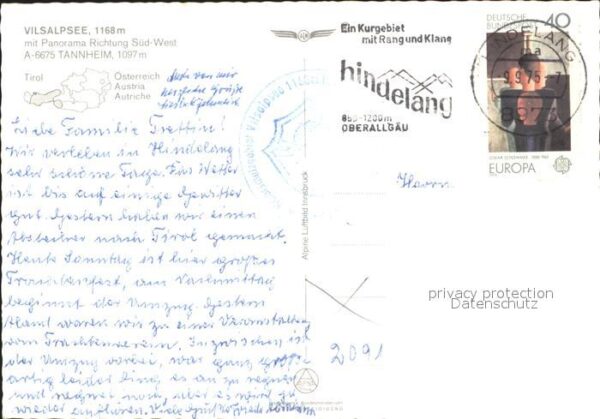 VILSALPSEE, 1168 m
mit Panorama Richtung Süd-West
A-6675 TANNHEIM, 1097 m
Tirol
Österreich
Austria
Autriche
Auch von mir
herzliche Grüße
Liebe Familie Trettin!
Wir verleben in Hindelang
sehr schöne Tage. Das Wetter
ist bis auf einige Gewitter
gut. Gestern haben wir einen
Abstecher nach Tirol gemacht.
Heute Sonntag ist hier großes
Trachtenfest, am Nachmittag
beginnt der Umzug. Gestern
Abend waren wir zu einer Veranstaltung
vom Trachtenverein. Inzwischen ist
der Umzug vorbei, war ganz groß-
artig leider fing es an zu regnen
und regnet noch, aber es wird ja
wieder aufhören. Viele Grüße
Alpine Luftbild Innsbruck
Ein Kurgebiet
mit Rang und Klang
hindelang
850-1200m
OBERALLGÄU
DEUTSCHE
BUNDESPOST
40
HINDELANG
a
9.9.75-7
8973
OSKAR SCHLEMMER
EUROPA
Herrn
2091
privacy protection
Datenschutz